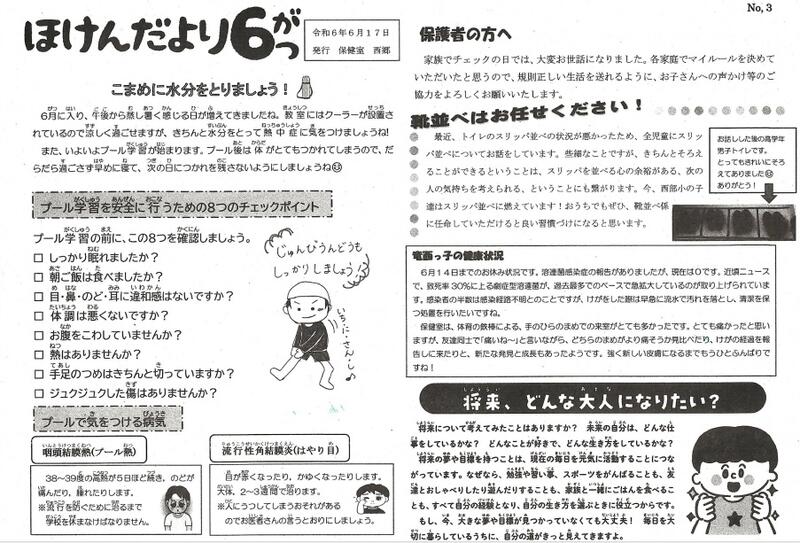 ほけんだより6がつ
令和6年6月17日
発行 保健室 西郷
こまめに水分をとりましょう！
6月に入り、午後から蒸し暑く感じる日が増えてきましたね。教室にはクーラーが設置さ
れているので涼しく過ごせますが、きちんと水分をとって熱中症に気をつけましょうね！
また、いよいよプール学習が始まります。プール後は体がとてもつかれてしまうので、だ
らだら過ごさず早めに寝て、次の日につかれを残さないようにしましょうね
プール学習を安全に行うための8つのチェックポイント
プール学習の前に、この8つを確認しましょう。
□ しっかり眠れましたか？
□ 朝ご飯は食べましたか？
□ 目・鼻・のど・耳に違和感はないですか？
□ 体調は悪くないですか？
□ お腹をこわしていませんか？
□ 熱はありませんか？
□ 手足のつめはきちんと切っていますか？
□ ジュクジュクした傷はありませんか？
じゅんびうんどうも
しっかりしましょう
いち、に、さん、し♪
プールで気をつける病気
咽頭結膜熱(プール熱)
38～39度の高熱が5日ほど続き、のどが
痛んだり、腫れたりします。
※流行を防ぐために治るまで
学校を休まなければなりません。
流行性角結膜炎(はやり目)
目が赤くなったり、かゆくなったりします。
大体、2～3週間で治ります。
※人にうつしてしまうおそれがある
のでお医者さんの言うとおりにしましょう。
No,3
保護者の方へ
家族でチェックの日では、大変お世話になりました。各家庭でマイルールを決めて
いただいたと思うので、規則正しい生活を送れるように、お子さんへの声かけ等のご
協力をよろしくお願いいたします。
靴並べはお任せください！
最近、トイレのスリッパ並べの状況が悪かったため、全児童にスリッ
パ並べについてお話をしています。些細なことですが、きちんとそろえ
ることができるということは、スリッパを並べる心の余裕がある、次の
人の気持ちを考えられる、ということにも繋がります。今、西部小の子
達はスリッパ並べに燃えています！おうちでもぜひ、靴並べ係
に任命していただけると良い習慣づけになると思います。
お話しした後の高学年
男子トイレです。
とってもきれいにそろ
えてありました
ありがとう！
竜西っ子の健康状況
6月14日までのお休み状況です。溶連菌感染症の報告がありましたが、現在は0です。近頃ニュース
で、致死率30％に上る劇症型溶連菌が、過去最多でのペースで急拡大しているのが取り上げられていま
す。感染者の半数は感染経路不明とのことですが、けがをした際は早急に流水で汚れを落とし、清潔を保
つ処置を行いたいですね。
保健室は、体育の鉄棒による、手のひらのまめでの来室がとても多かったです。とても痛かったと思い
ますが、友達同士で「痛いね～」と言いながら、どちらのまめがより痛そうか見比べたり、けがの経過を報
告しに来たりと、新たな発見と成長もあったようです。強く新しい皮膚になるまでもうひとふんばりです
ね！
将来、どんな大人になりたい？
将来について考えてみたことはありますか？ 未来の自分は、どんな仕
事をしているかな？ どんなことが好きで、どんな生き方をしているかな？
将来の夢や目標を持つことは、現在の毎日を元気に活動することにつな
がっています。なぜなら、勉強や習い事、スポーツをがんばることも、友
達とおしゃべりしたり遊んだりすることも、家族と一緒にごはんを食べるこ
とも、すべて自分の経験となり、自分の生き方を選ぶときに役立つからです。
もし、今、大きな夢や目標が見つかっていなくても大丈夫！ 毎日を大
切に暮らしているうちに、自分の道がきっと見えてきますよ。